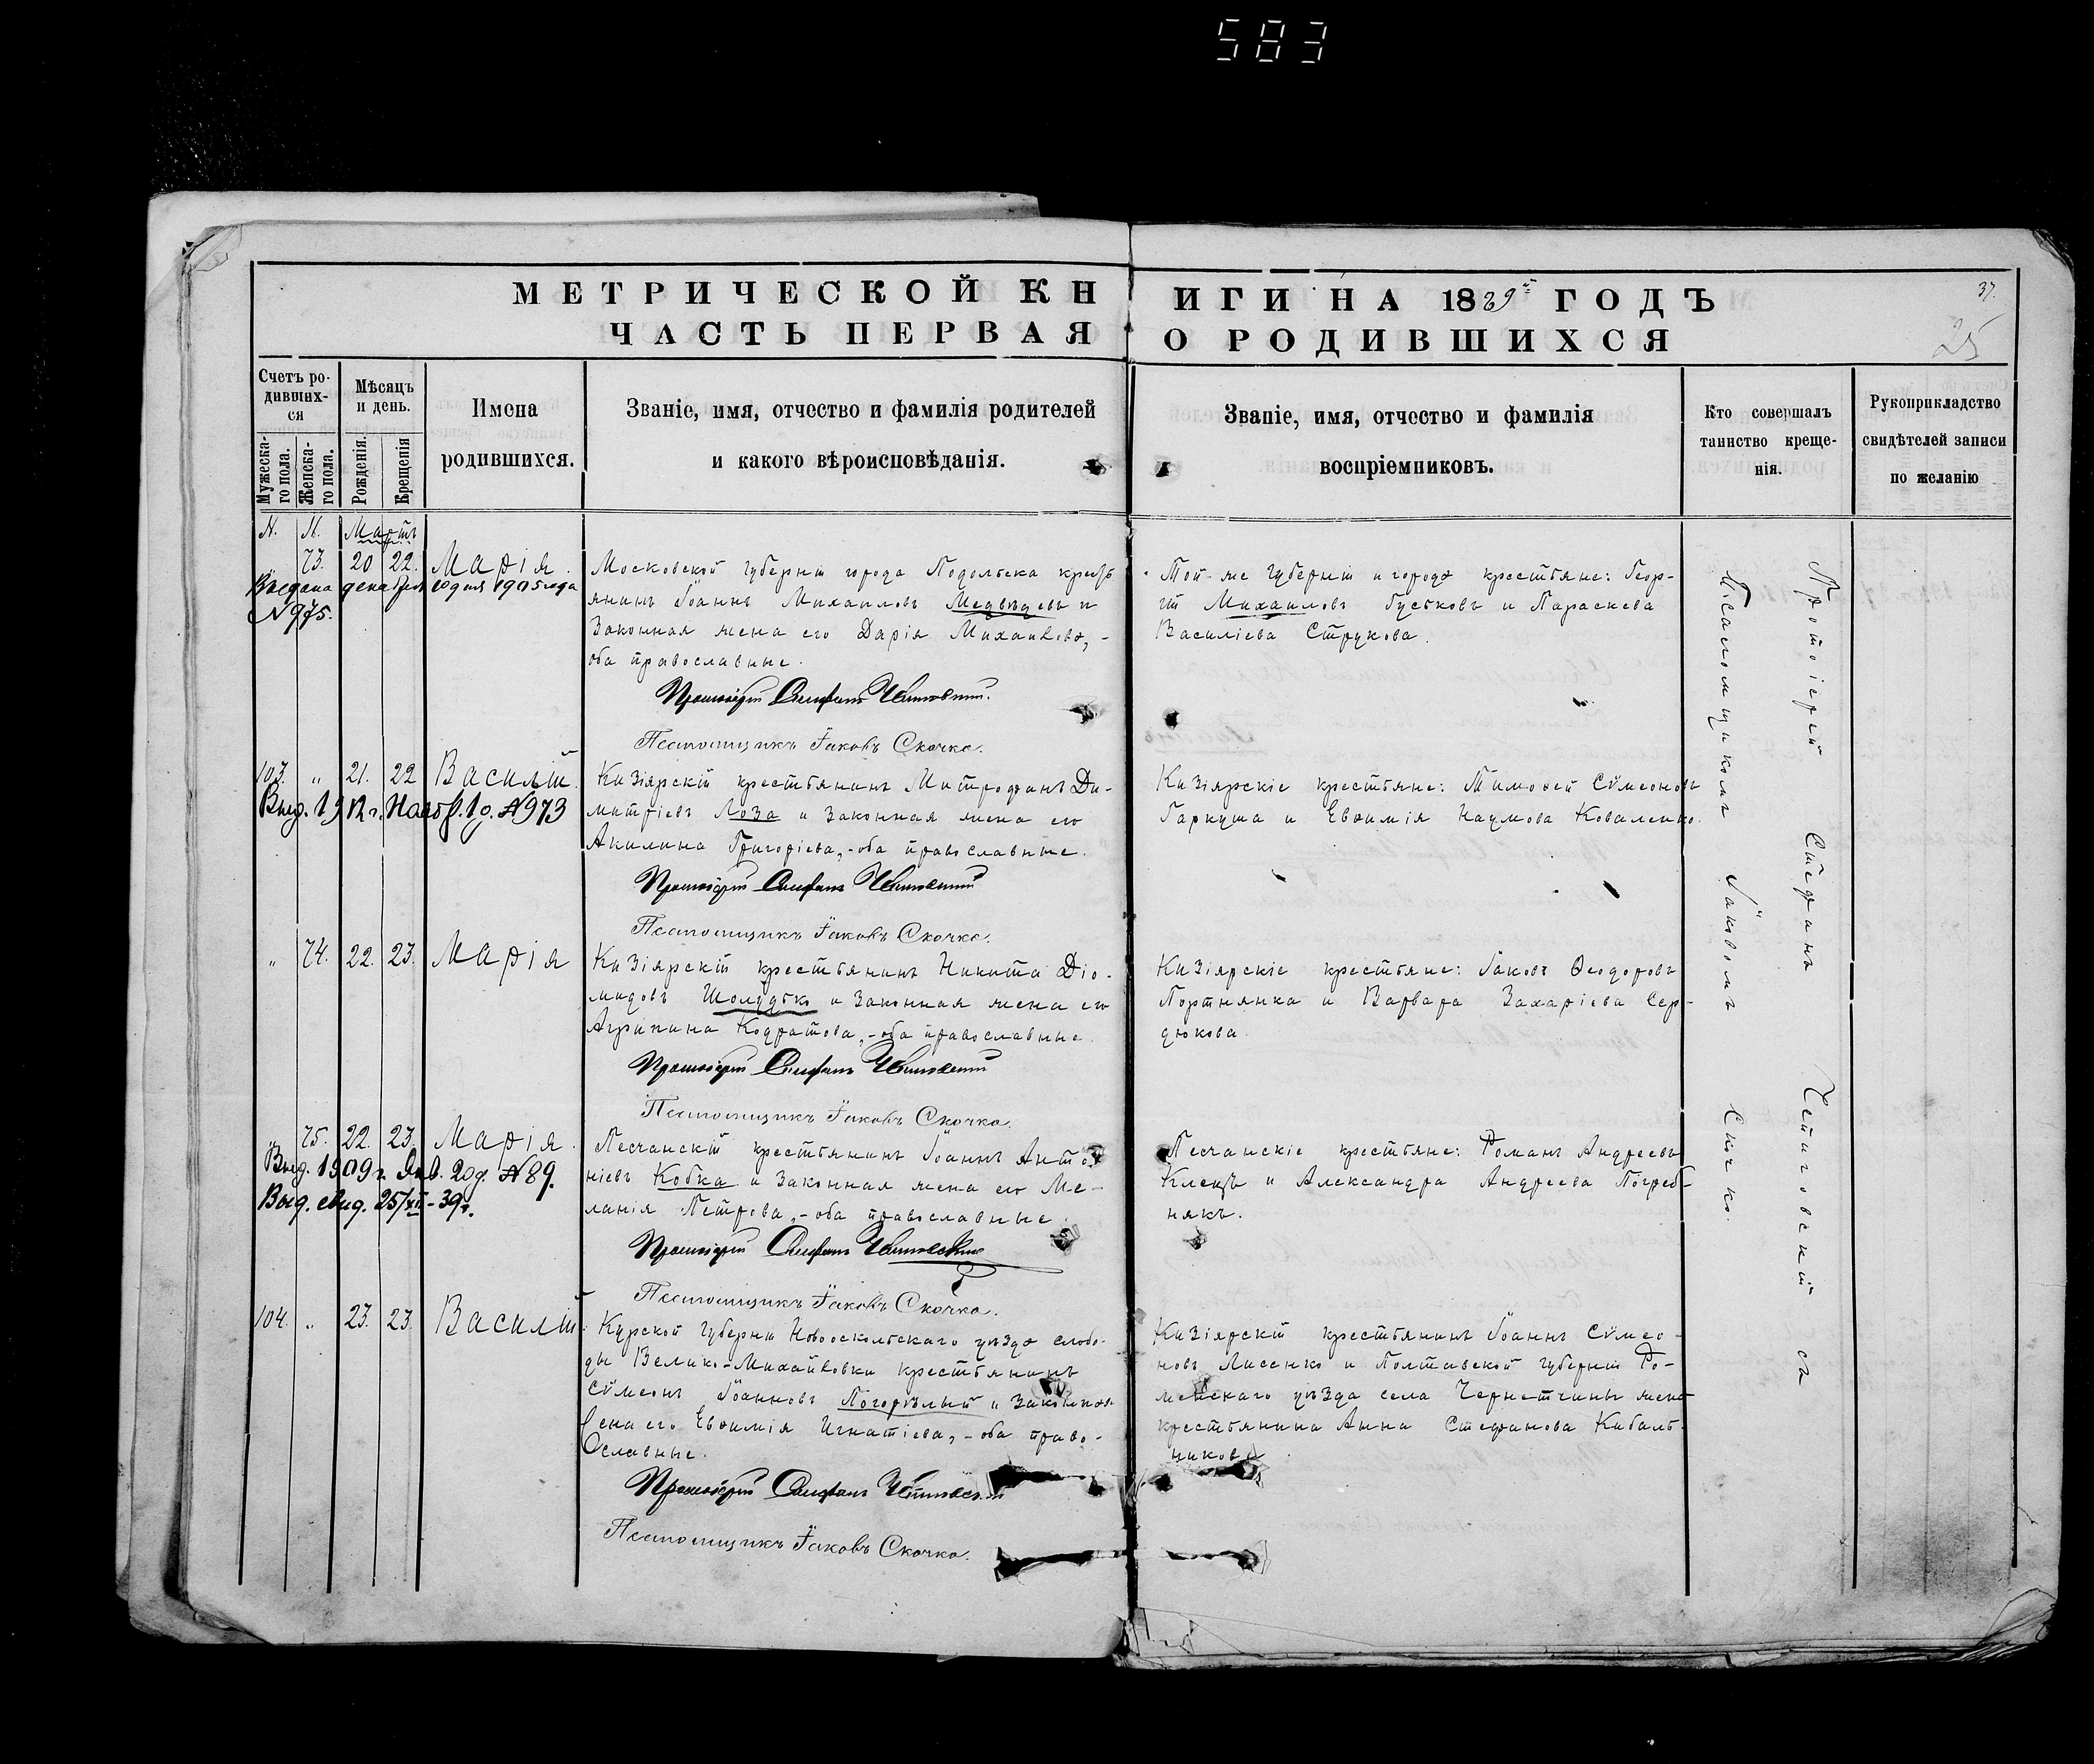 583
МЕТРИЧЕСКОЙ КНИГИ НА 1889й ГОДЪ
37.
ЧАСТЬ ПЕРВАЯ О РОДИВШИХСЯ
25
Счетъ родившихся
Мужеска-го пола.
Женска-го пола.
Мѣсяцъ и день.
Рожденія.
Крещенія
Имена родившихся.
Званіе, имя, отчество и фамилія родителей и какого вѣроисповѣданія.
Званіе, имя, отчество и фамилія воспріемниковъ.
Кто совершалъ таинство крещенія.
Рукоприкладство свидѣтелей записи по желанію
Мартъ
73. 20 22. Марія.
Выдана 10 дня 1905 года
№ 975.
Московской губерніи города Подольска крестъ
янинъ Іоаннъ Михаиловъ Медвѣдевъ и
законная жена его Дарія Михаилова,-
оба православные.
Протоіерей Стефанъ
Псаломщикъ Іаковъ Скочко.
Той-же губерніи и города крестьяне: Геор-
гій Михаиловъ Гуськовъ и Параскева
Василіева Струкова.
103. „ 21. 22 Василій.
Выд. 1912 г. Нояб. 10. № 973
Кизіярскій крестьянинъ Митрофанъ Ди-
митріевъ Лоза и законная жена его
Акилина Григоріева,-оба православные.
Протоіерей Стефанъ
Псаломщикъ Іаковъ Скочко.
Кизіярскіе крестьяне: Тимоѳей Сѵмеоновъ
Гаркуша и Евѳимія Наумова Коваленко.
„ 74. 22. 23. Марія
Кизіярскій крестьянинъ Никита Діо-
мидовъ Шолудько и законная жена его
Агрипина Кодратова,-оба православные.
Протоіерей Стефанъ
Псаломщикъ Іаковъ Скочко.
Кизіярскіе крестьяне: Іаковъ Ѳеодоровъ
Портнянка и Варвара Захаріева Сер-
дюкова.
„ 75. 22. 23. Марія.
Выд. 1909 г. Янв. 20 д. № 89.
Выд. свид. 25/XII-39 г.
Песчанскій крестьянинъ Іоаннъ Анто-
ніевъ Кобка и законная жена его Ме-
ланія Петрова,-оба православные
Протоіерей Стефанъ
Псаломщикъ Іаковъ Скочко.
Песчанскіе крестьяне: Романъ Андреевъ
и Александра Андреева Погреб-
някъ.
104. „ 23. 23. Василій.
Курской губерніи Новооскольскаго уѣзда слобо-
ды Велико-Михайловки крестьянинъ
Сѵмеонъ Іоанновъ Погорѣлый и законная
жена его Евѳимія Игнатіева,-оба право-
славные.
Протоіерей Стефанъ
Псаломщикъ Іаковъ Скочко.
Кизіярскій крестьянинъ Іоаннъ Сѵмео-
новъ Лисенко и Полтавской губерніи Ро-
менскаго уѣзда села Чернетчины жена
крестьянина Анна Стефанова Кибаль-
никова.
Протоіерей Стефанъ съ
Псаломщикомъ Іаковомъ Скочко.